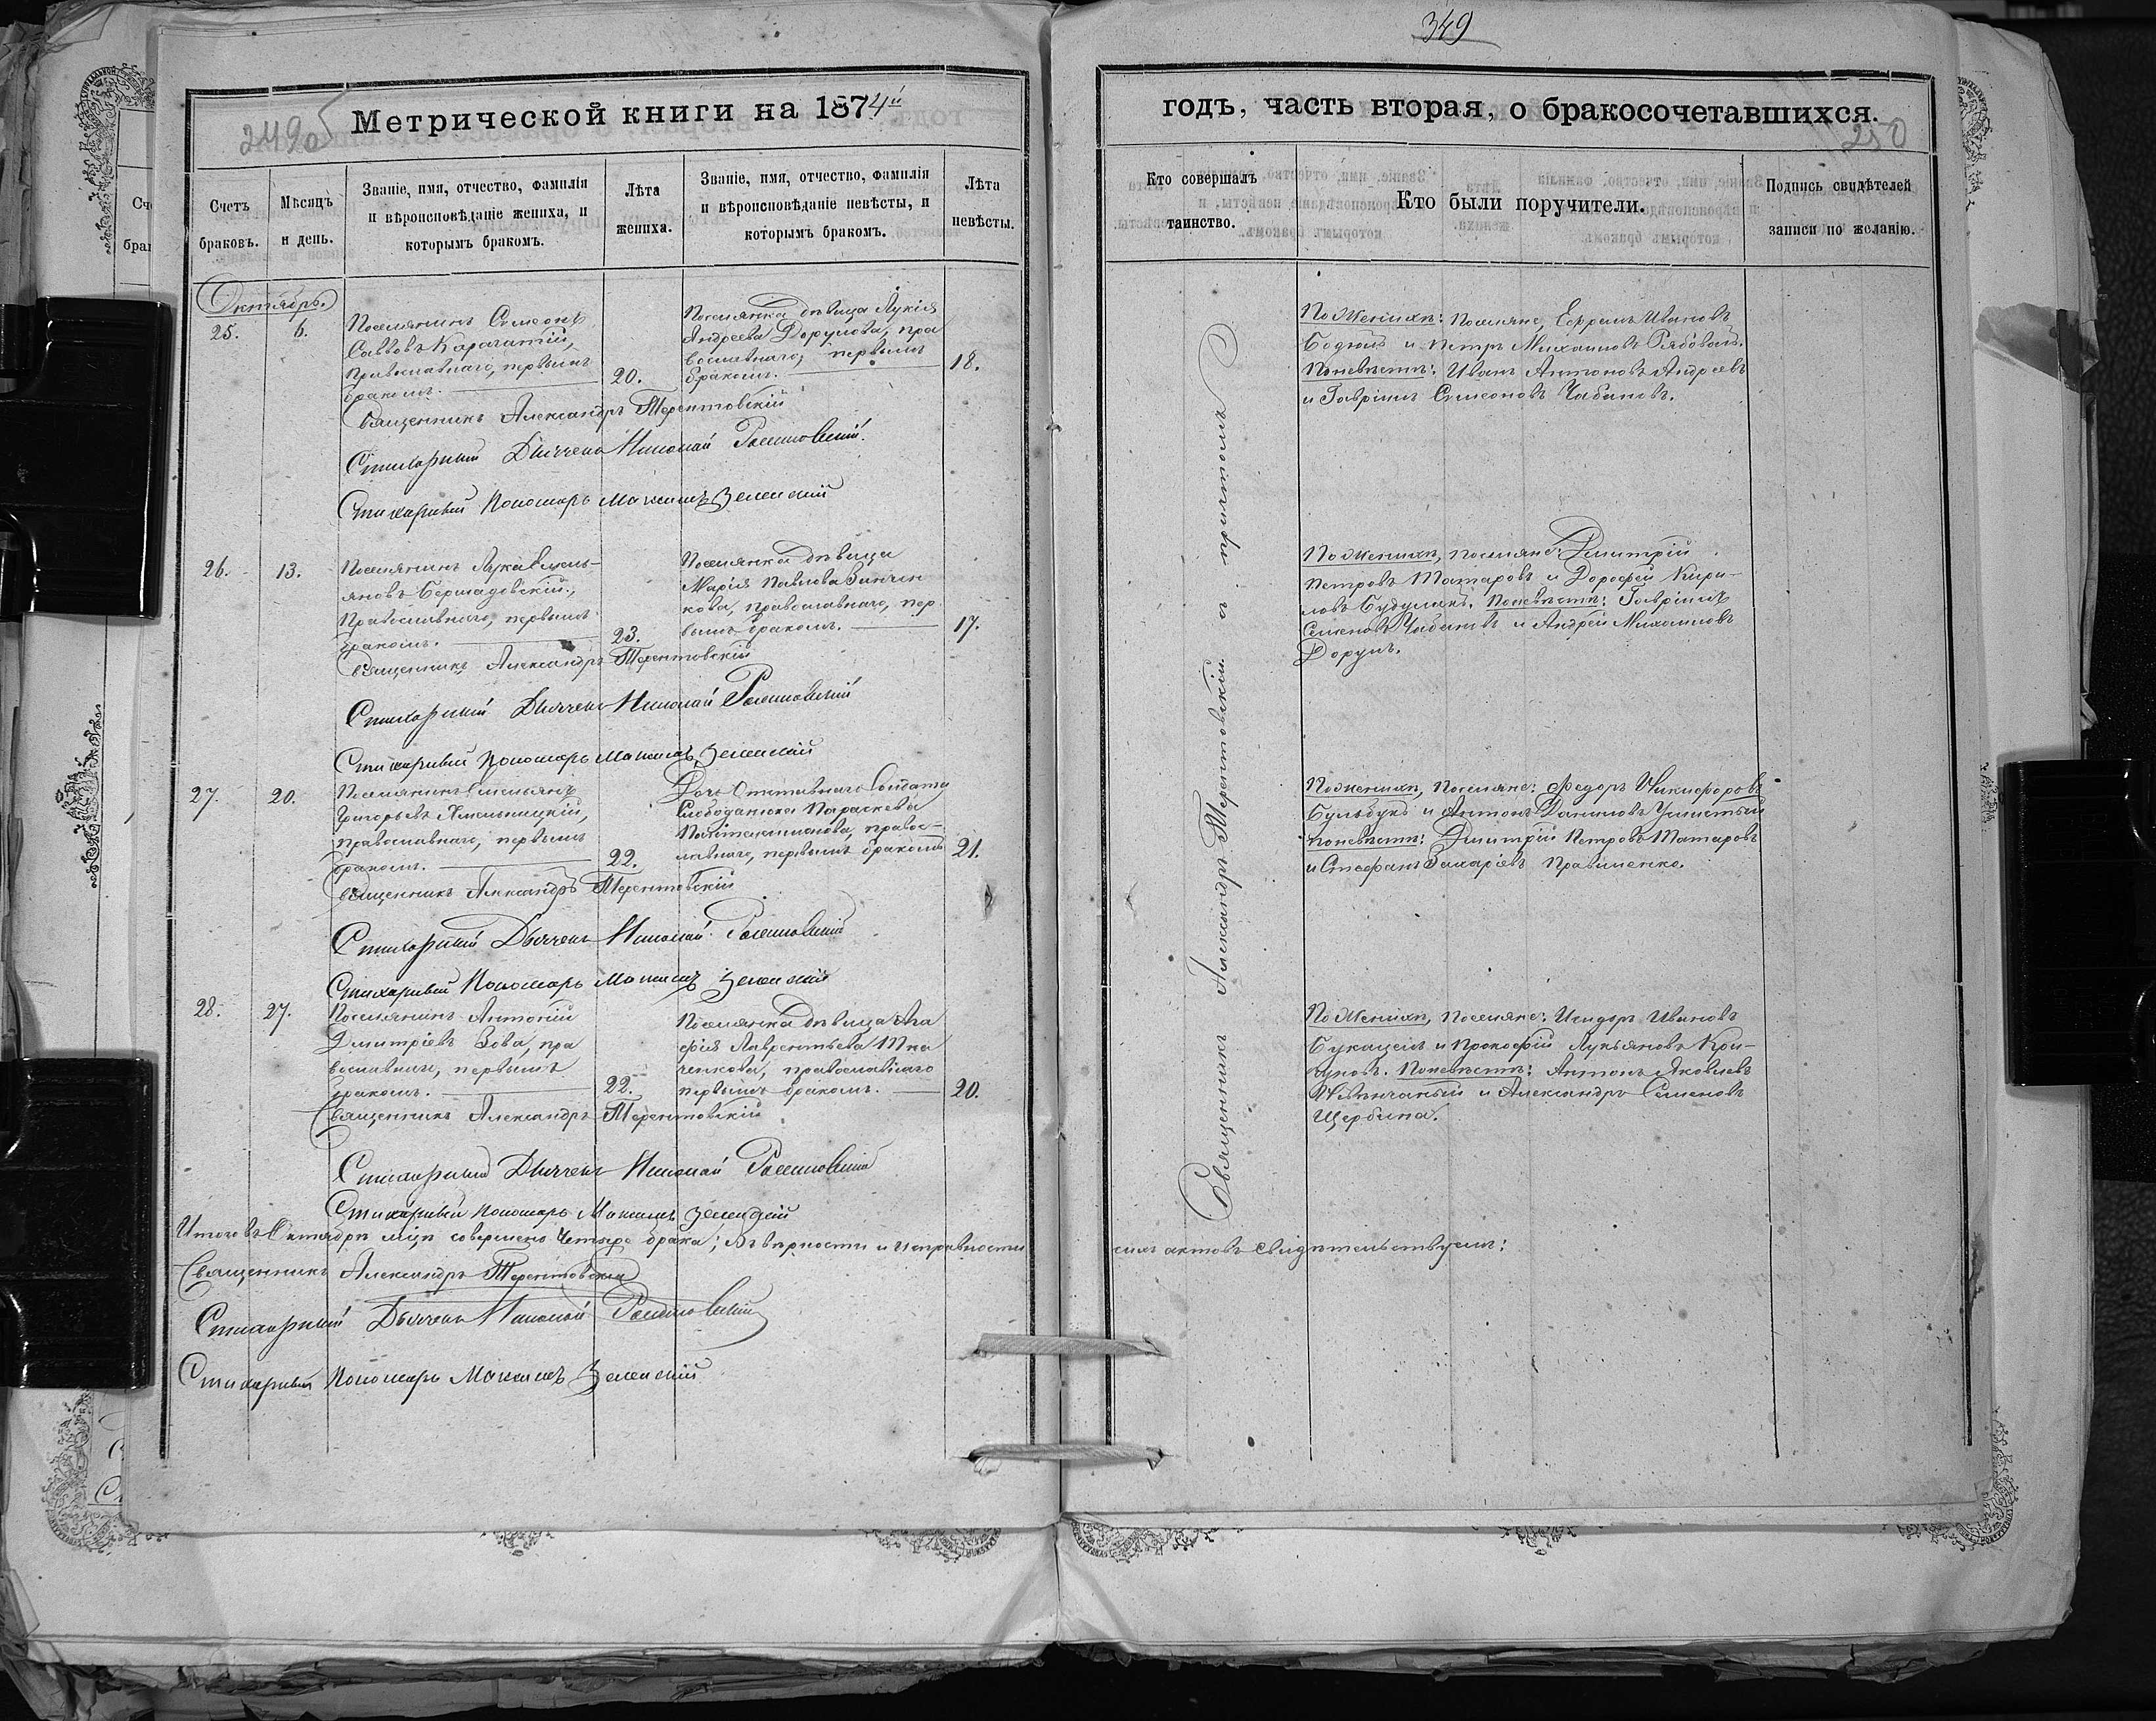 349
Метрической книги на 1874й
годъ, часть вторая, о бракосочетавшихся.
250
Счетъ браковъ.
Мѣсяцъ и день.
Званіе, имя, отчество, фамилія
и вѣроисповѣданіе жениха, и
которымъ бракомъ.
Лѣта жениха.
Званіе, имя, отчество, фамилія
и вѣроисповѣданіе невѣсты, и
которымъ бракомъ.
Лѣта невѣсты.
Кто совершалъ
таинство.
Кто были поручители.
Подпись свидѣтелей
записи по желанію.
Октябрь.
25.
6.
Поселянинъ Симеонъ
Саввовъ Карагатій,
православнаго, первымъ
бракомъ.
20.
Поселянка дѣвица Лукія
Андреева Дорулова, пра
вославнаго, первымъ
бракомъ.
18.
Священникъ Александръ Терентовскій
Стихарный Дьячекъ Николай
Стихарный Пономарь Максимъ Зеленскій
По женихѣ: поселяне, Ефремъ Ивановъ
и Петръ Михаиловъ
По невѣстѣ: Иванъ Антоновъ Андреевъ
и Гавріилъ Симеоновъ Чабановъ.
26.
13.
Поселянинъ Лука
православнаго, первымъ
бракомъ.
23.
Поселянка дѣвица
Марія Павлова Зинчен
кова, православнаго, пер
вымъ бракомъ.
17.
Священникъ Александръ Терентовскій
Стихарный Дьячекъ Николай
Стихарный Пономарь Максимъ Зеленскій
По женихѣ, поселяне: Дмитрій
Петровъ Татаровъ и Дорофей Кири-
ловъ По невѣстѣ: Гавріилъ
Семеновъ Чабановъ и Андрей Михаиловъ
Дорулъ.
27.
20.
Поселянинъ Емельянъ
Григорьевъ Хмельницкій,
православнаго, первымъ
бракомъ.
22.
Дочь отставнаго солдата
Слободянюка Параскева
Пантелеимонова, правос-
лавнаго, первымъ бракомъ
21.
Священникъ Александръ Терентовскій
Стихарный Дьячекъ Николай
Стихарный Пономарь Максимъ Зеленскій
По женихѣ, поселяне: Федоръ Никифоровъ
и Антонъ Даниловъ
По невѣстѣ: Дмитрій Петровъ Татаровъ
и Стефанъ Захаріевъ Правиленко.
28.
27.
Поселянинъ Антоній
Дмитріевъ Зова, пра
вославнаго, первымъ
бракомъ.
22.
Поселянка дѣвица Ага
фія Лаврентьева Тка
ченкова, православнаго
первымъ бракомъ.
20.
Священникъ Александръ Терентовскій
Стихарный Дьячекъ Николай
Стихарный Пономарь Максимъ Зеленскій
По женихѣ, поселяне: Исидоръ Ивановъ
и Прокофій Лукьяновъ
По невѣстѣ: Антонъ Яковлевъ
и Александръ Семеновъ
Щербина.
Священникъ Александръ Терентовскій съ причтомъ
Итого въ Октябрѣ мцѣ совершено четыре брака; въ вѣрности и исправности
сихъ актовъ свидѣтельствуемъ:
Священникъ Александръ Терентовскій
Стихарный Дьячекъ Николай
Стихарный Пономарь Максимъ Зеленскій